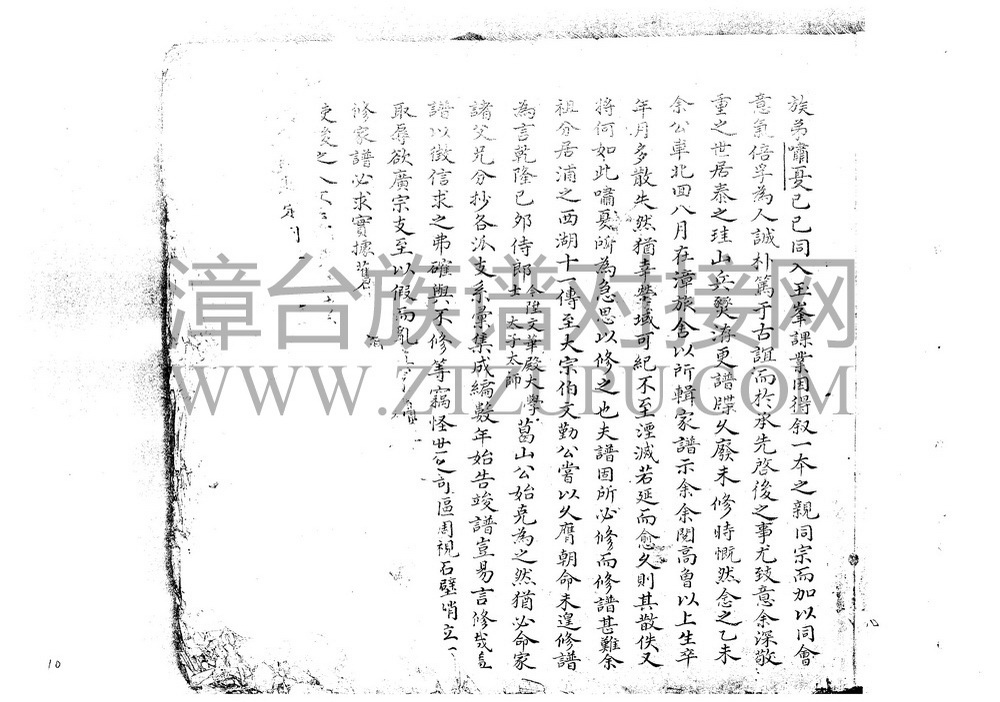 族弟嘯夏己巳同入玉峯課業因得叙一本之親同宗而加以同會
意氣倍孚為人誠朴篤于古誼而於承先啓後之事尤致意余深敬
重之世居泰之珪山兵燹洊更譜牒久廢未修時慨然念之乙未
余公車北回八月在漳旅舍以所輯家譜示余余閱高曾以上生卒
年月多散失然猶幸塋域可紀不至湮滅若延而愈久則其散佚又
將何如此嘯夏所為急思以修之也夫譜固所必修而修譜甚難余
祖分居浦之西湖十一傳至大宗伯文勤公嘗以久膺朝命未遑修譜
為言乾隆己卯侍郎今陞文華殿大學士太子太師葛山公始克為之然猶必命家
諸父兄分抄各派支系彙集成編數年始告竣譜豈易言修哉
譜以徵信求之弗確與不修等竊怪世之 區周視石壁峭立
取辱欲廣宗支至以假而亂
修家譜必求實據舊
使後之人
年月
漳台族谱对接网
WWW.ZTZUPU.COM
10